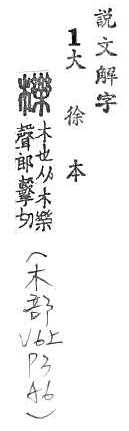 説文解字
1大徐本
櫟
木也从木樂
聲郎擊切
(木部V6上P3A6)